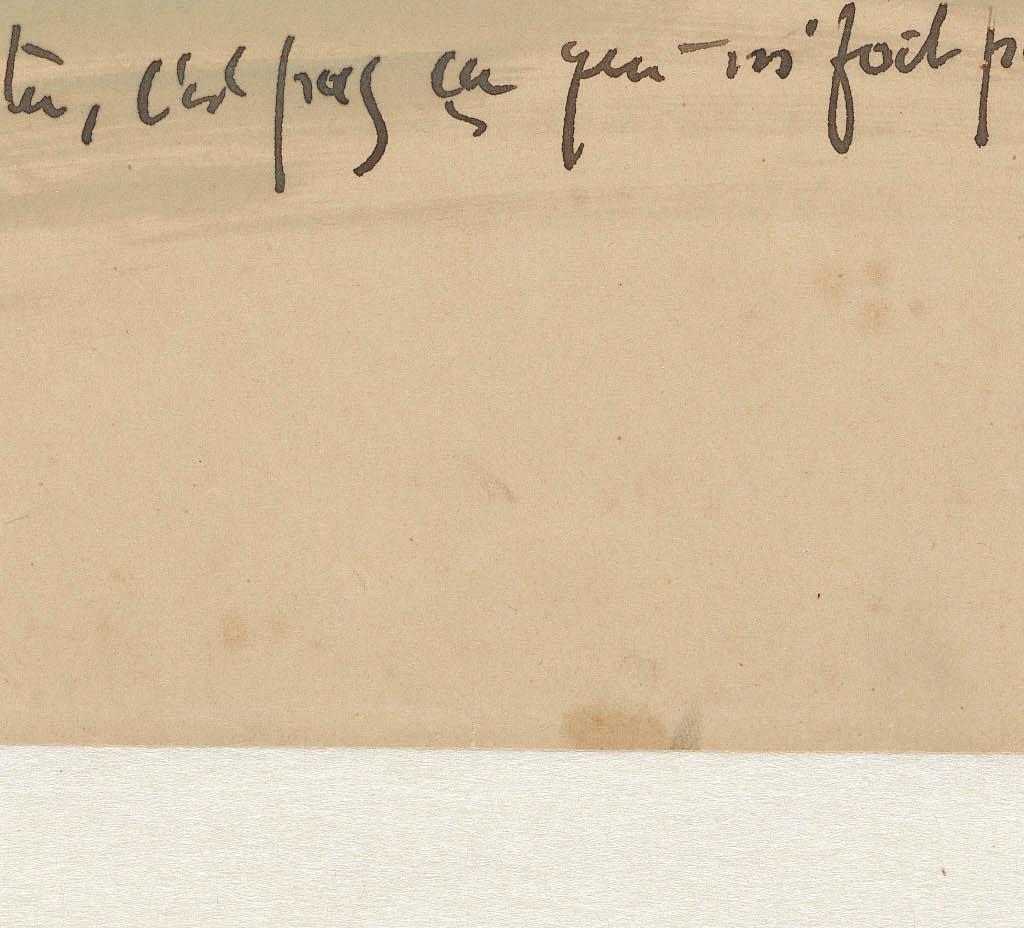 tu, c'est pas ça m'fait